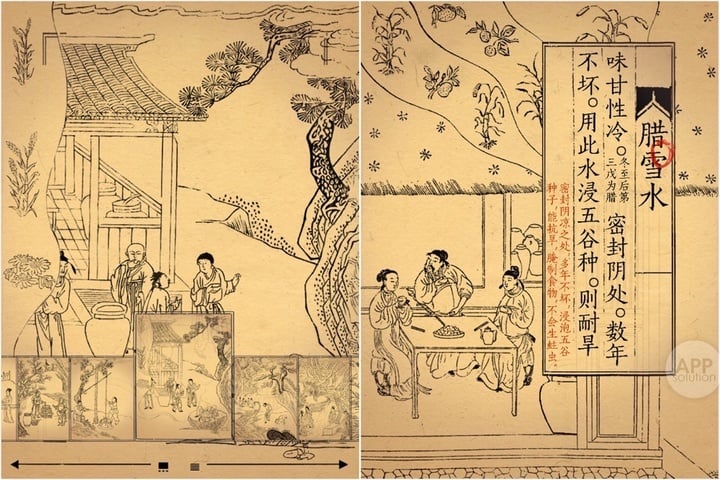 腊雪水
味甘性冷。冬至后第三戊为腊 密封阴处。数年
不坏。用此水浸五谷种。则耐旱
密封阴凉之处，多年不坏，浸泡五谷
种子，能抗旱，腌制食物，不会生蛀虫。
APP
solution